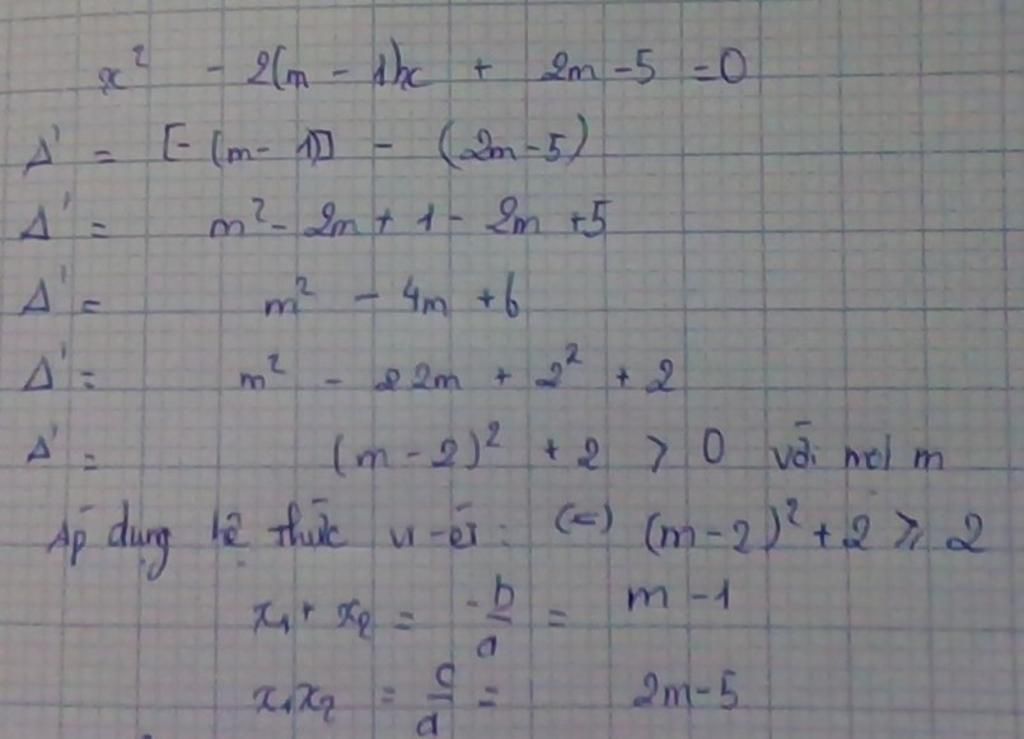 x² - 2(m - 1)x + 2m - 5 = 0
Δ' = [- (m - 1)] - (2m - 5)
Δ' = m² - 2m + 1 - 2m + 5
Δ' = m² - 4m + 6
Δ' = m² - 2 2m + 2² + 2
Δ' = (m - 2)² + 2 > 0 với mọi m
Áp dụng hệ thức vi-ét: (=) (m - 2)² + 2 ≥ 2
x₁ + x₂ = -b/a = m - 1
x₁x₂ = c/a = 2m - 5